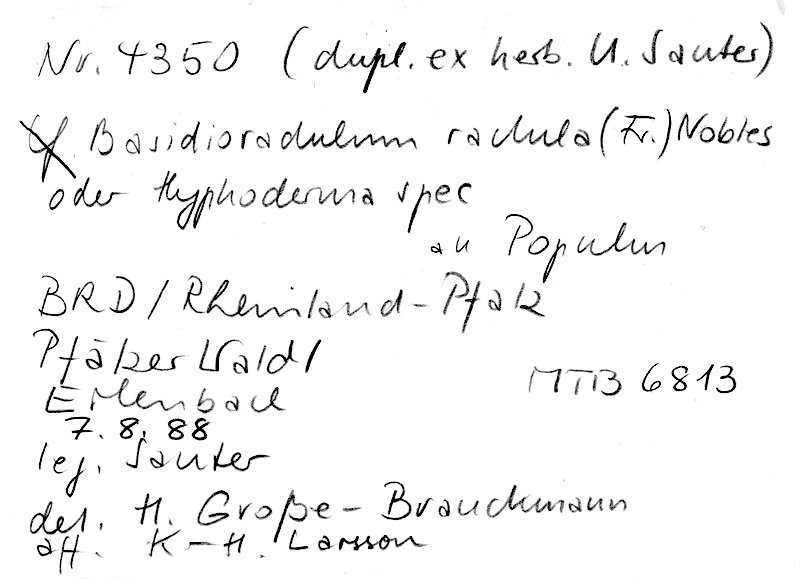 Nr. 4350 (dupl. ex herb. U. Sauter)
cf. Basidioradulum radula (Fr.) Nobles
oder Hyphoderma spec
an Populus
BRD / Rheinland-Pfalz
Pfälzer Wald /
Erlenbach
MTB 6813
7. 8. 88
leg. Sauter
det. H. Große-Brauckmann
aff. K-H. Larsson